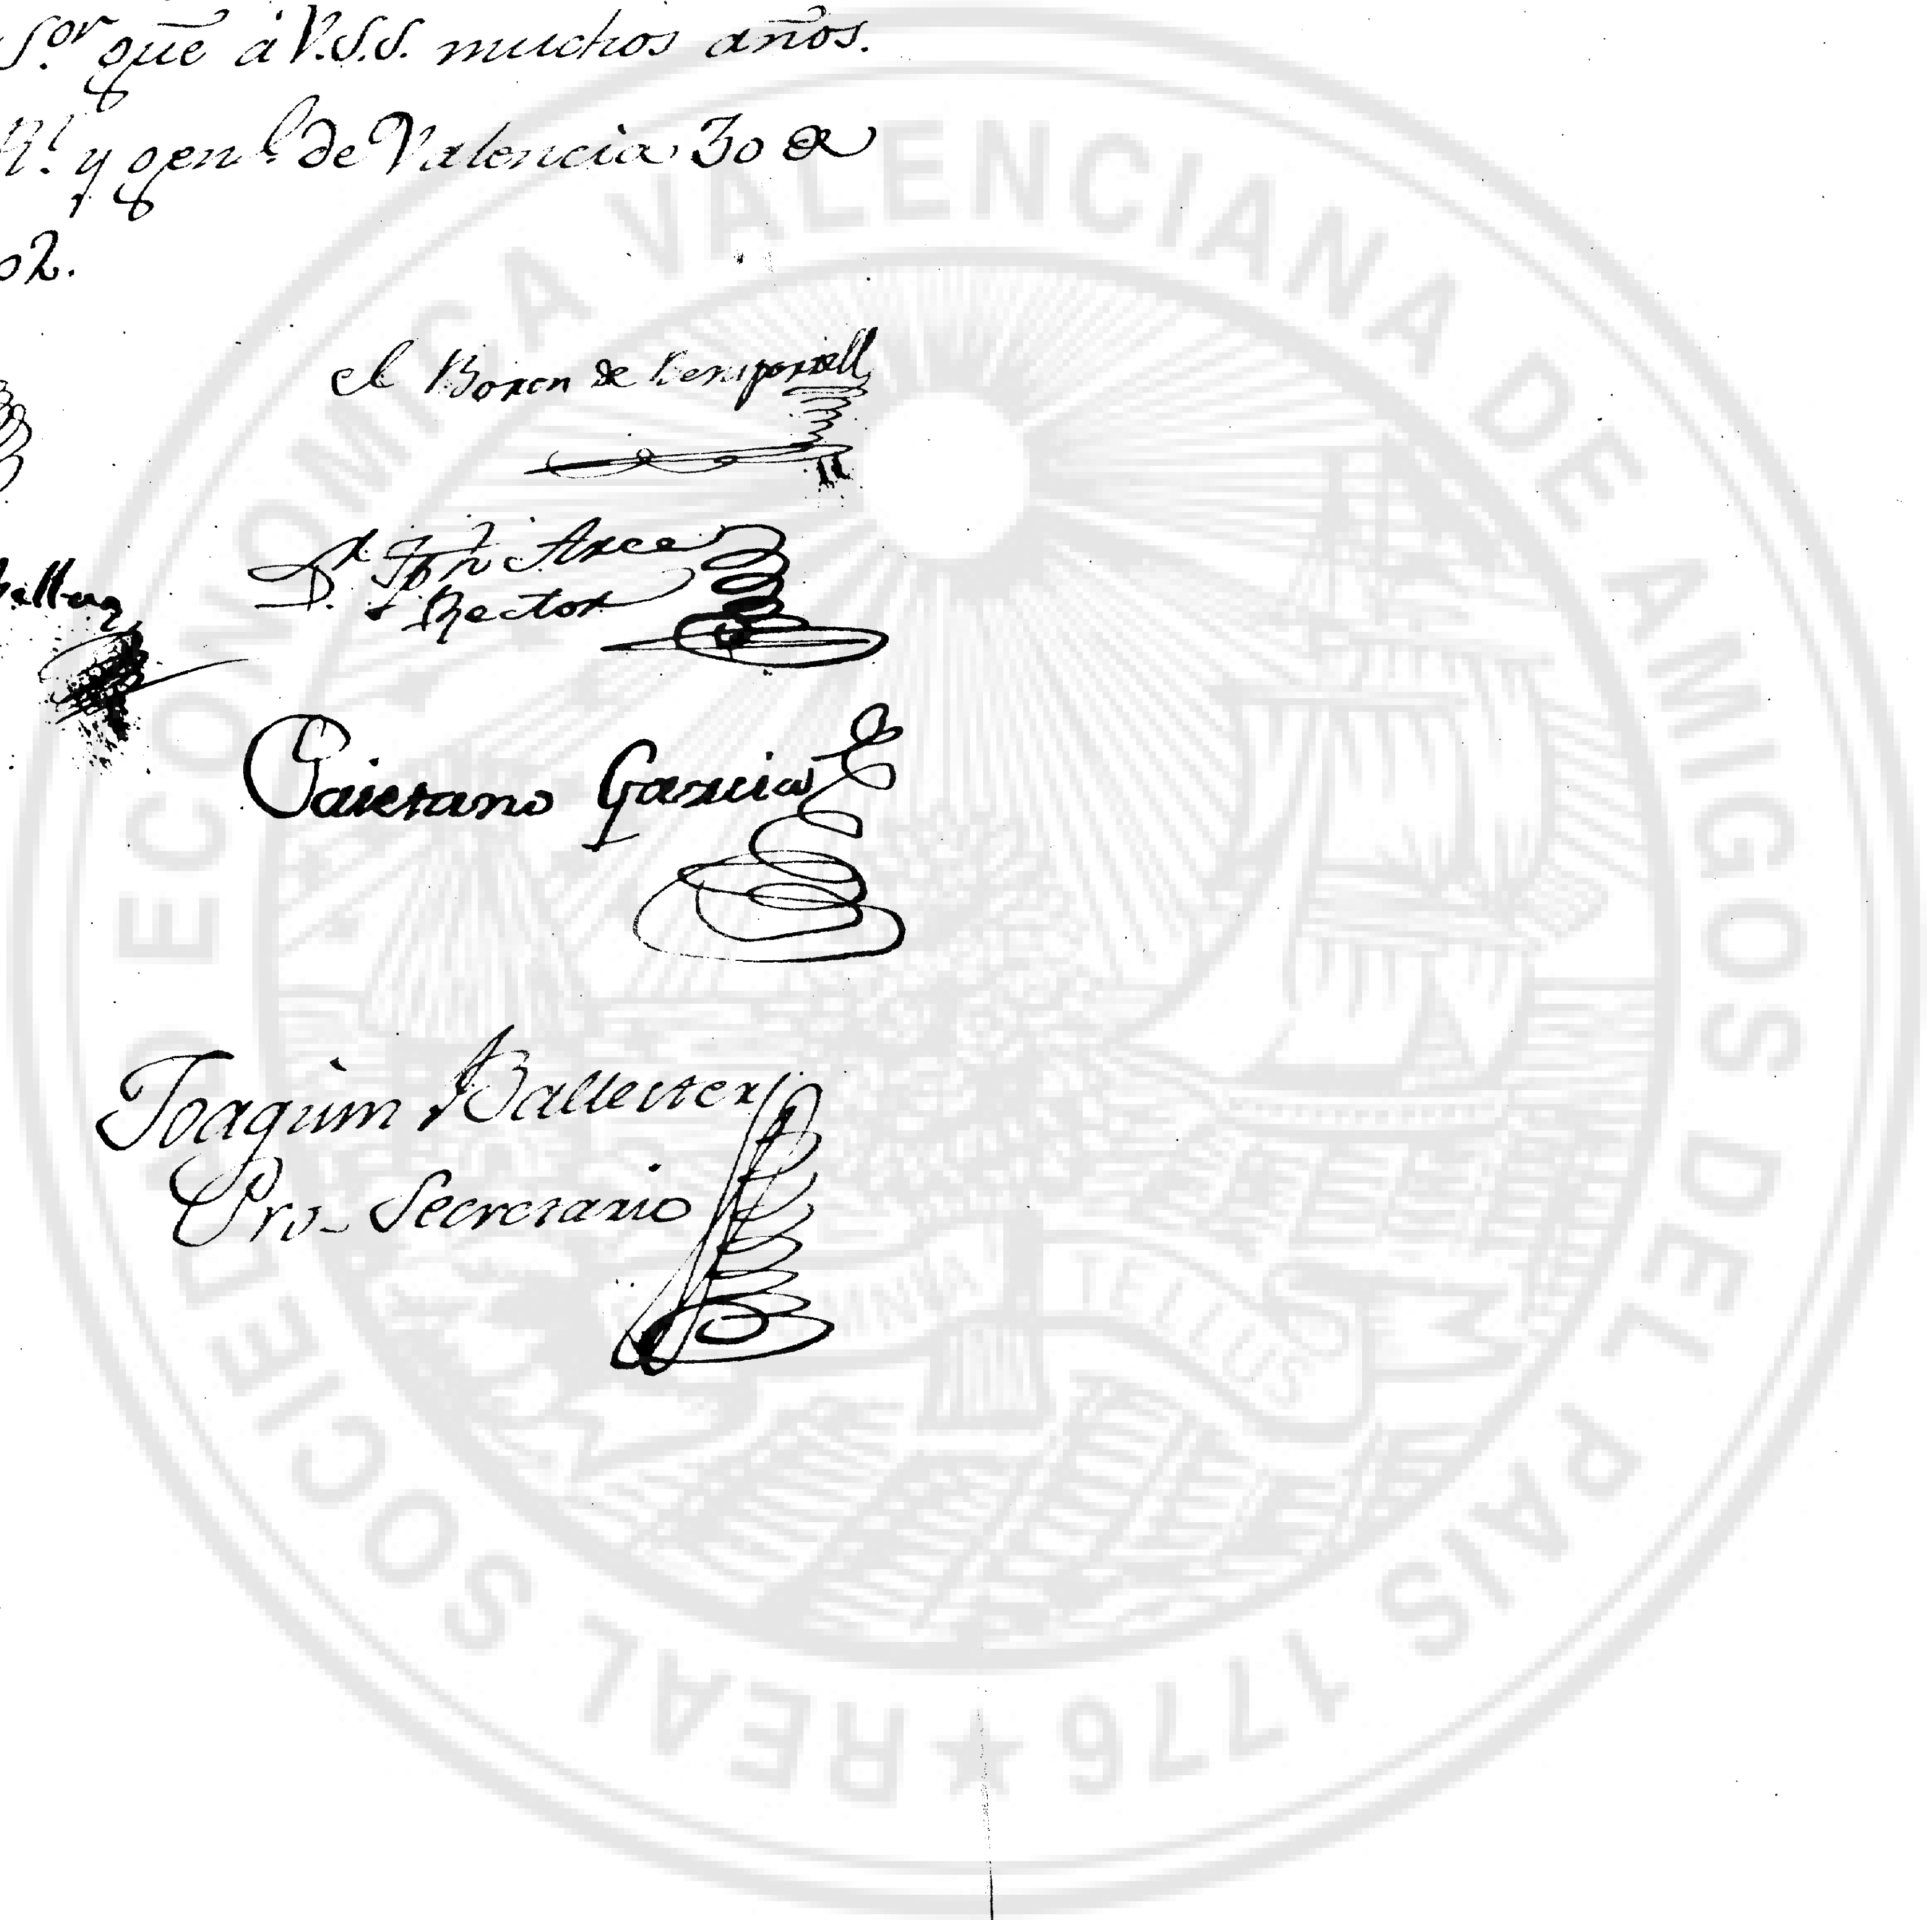 S.or gūe á V.S.S. muchos años.
R.l y gen.l de Valencia 30 de
02.
el Baron de Benipor
D.n Jph Arce
Rector
Caietano Garcia
Joaquin Ballester
Pro-Secretario
REAL SOCIEDAD ECONOMICA VALENCIANA DE AMIGOS DEL PAIS 1776
OMNIA